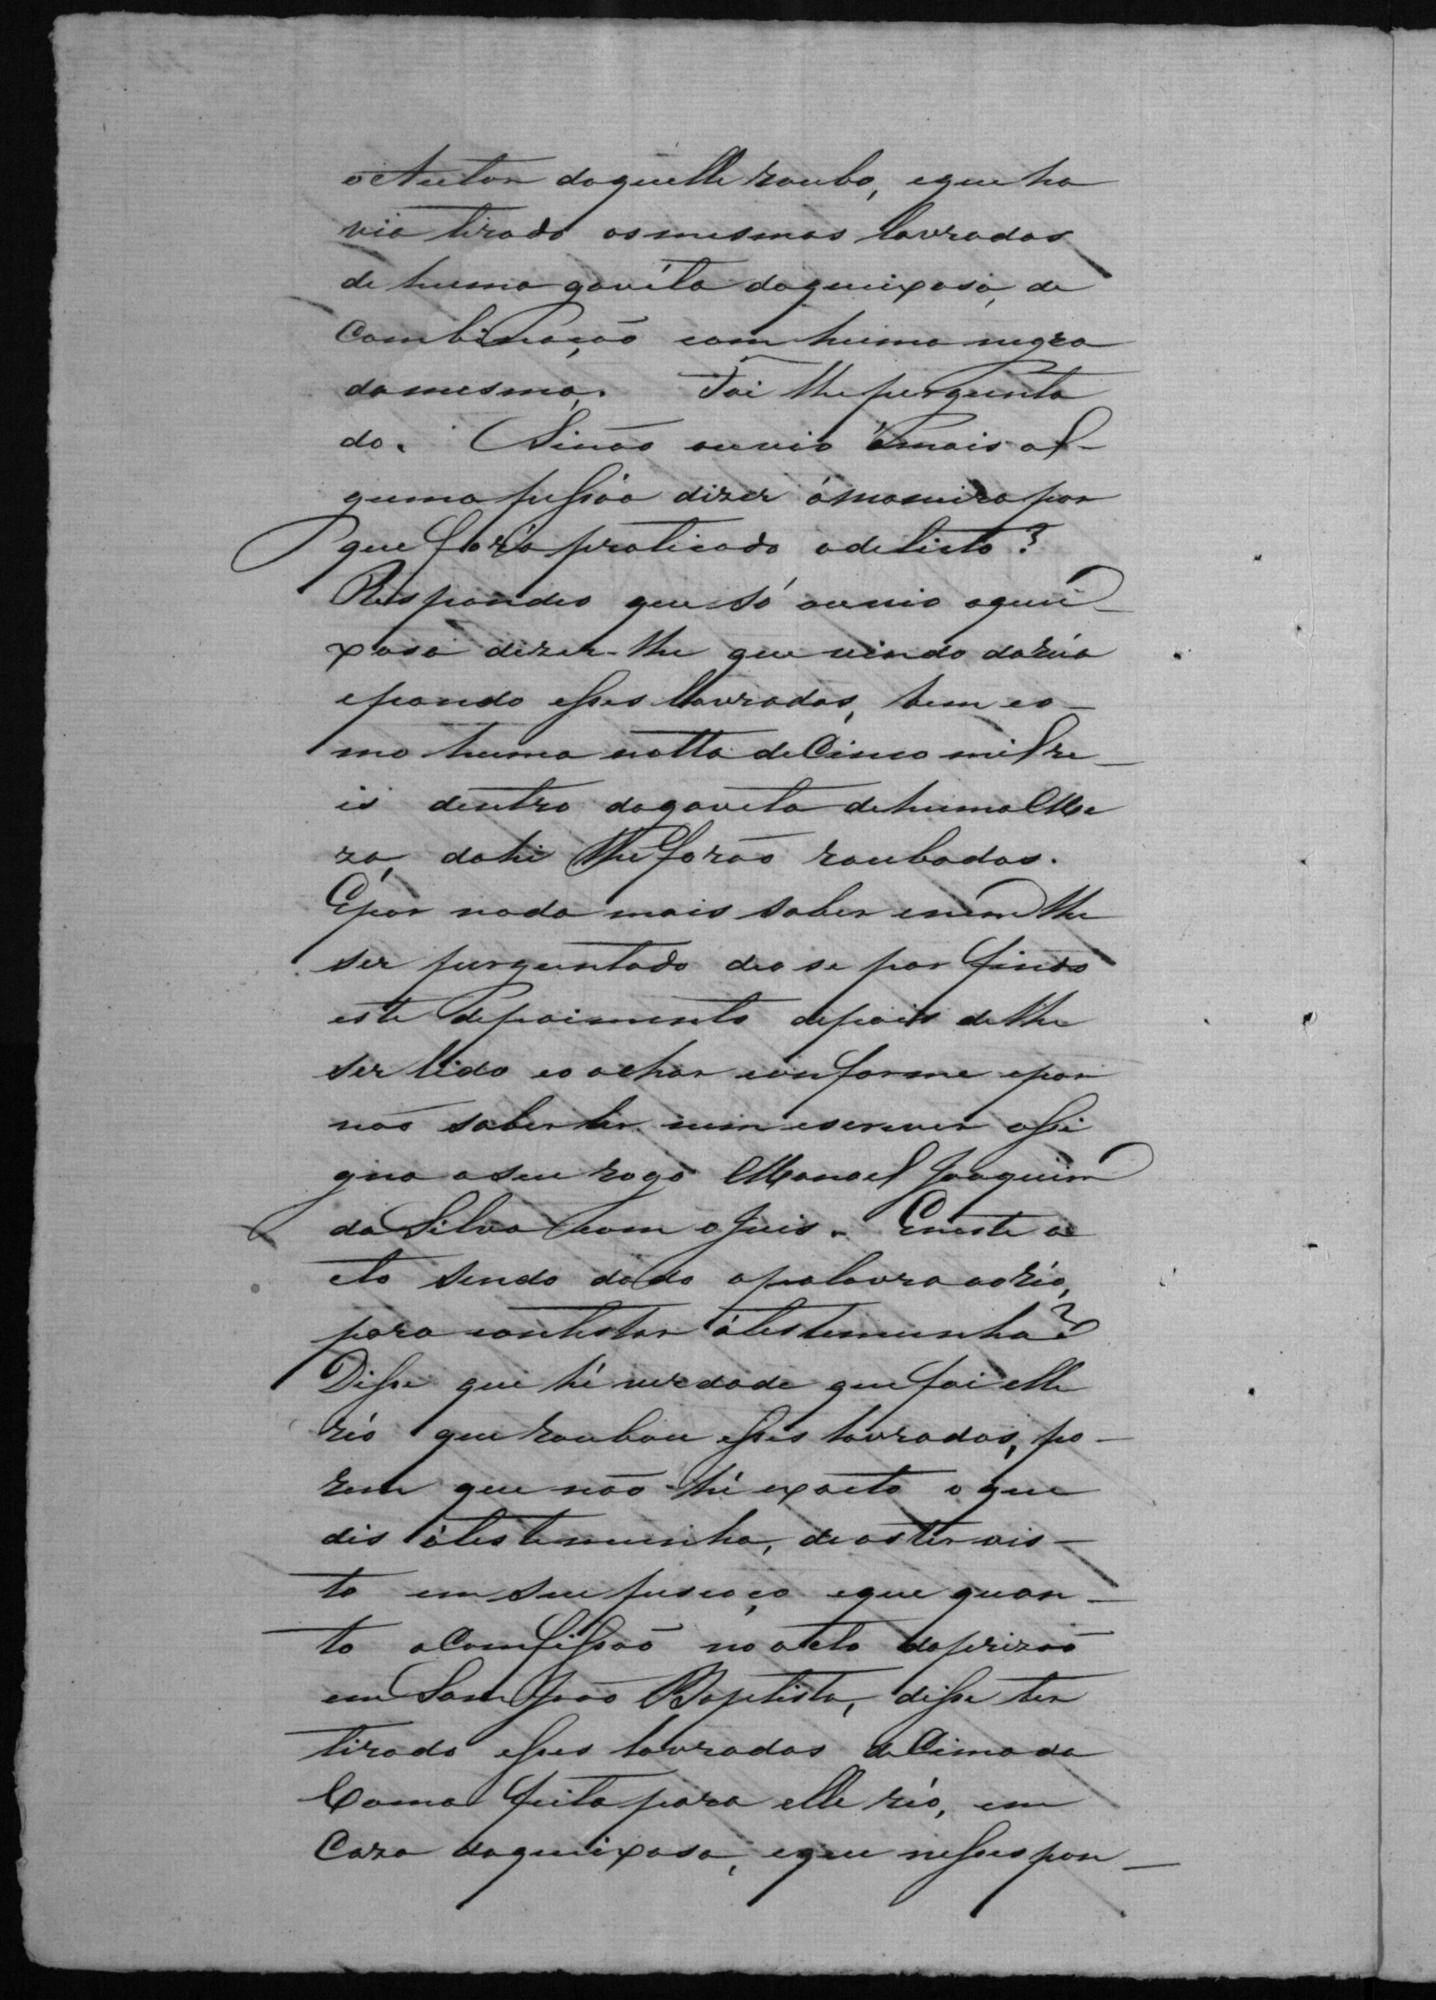 o Autor daquelle roubo, e que ha
via tirado os mesmos lavrados
de huma gavêta da queixosa, de
Combinação com huma negra
da mesma. Foi lhe pergunta
do. Si não ouvio á mais al-
guma pessôa dizer á maneira por
que fora praticado o delicto?
Respondeo que só ouvio a quei-
xosa dizer-lhe que vindo da rúa
e pondo esses lavrados, bem co-
mo huma notta de Cinco mil re-
is dentro da gaveta de huma Me
za, dahi lhe forão roubados.
E por nada mais saber e nem lhe
ser perguntado deo se por findo
este depoimento depois de lhe
ser lido e o achar conforme e por
não saber ler nem escrever assi
gna a seu rogo Manoel Joaquim
da Silva com o Juis. E neste a
cto sendo dada a palavra ao réo,
para contestar á testemunha?
Disse que hé verdade que foi elle
réo que roubou esses lavrados, po-
rem que não hé exacto o que
dis á testemunha, de os ter vis-
to em seu pescoço e que quan-
to a Comfissão no acto da prizão
em Sam João Baptista, disse ter
tirado esses lavrados de Cima da
Cama feita para elle réo, em
Caza da queixosa, e que nesses pon-